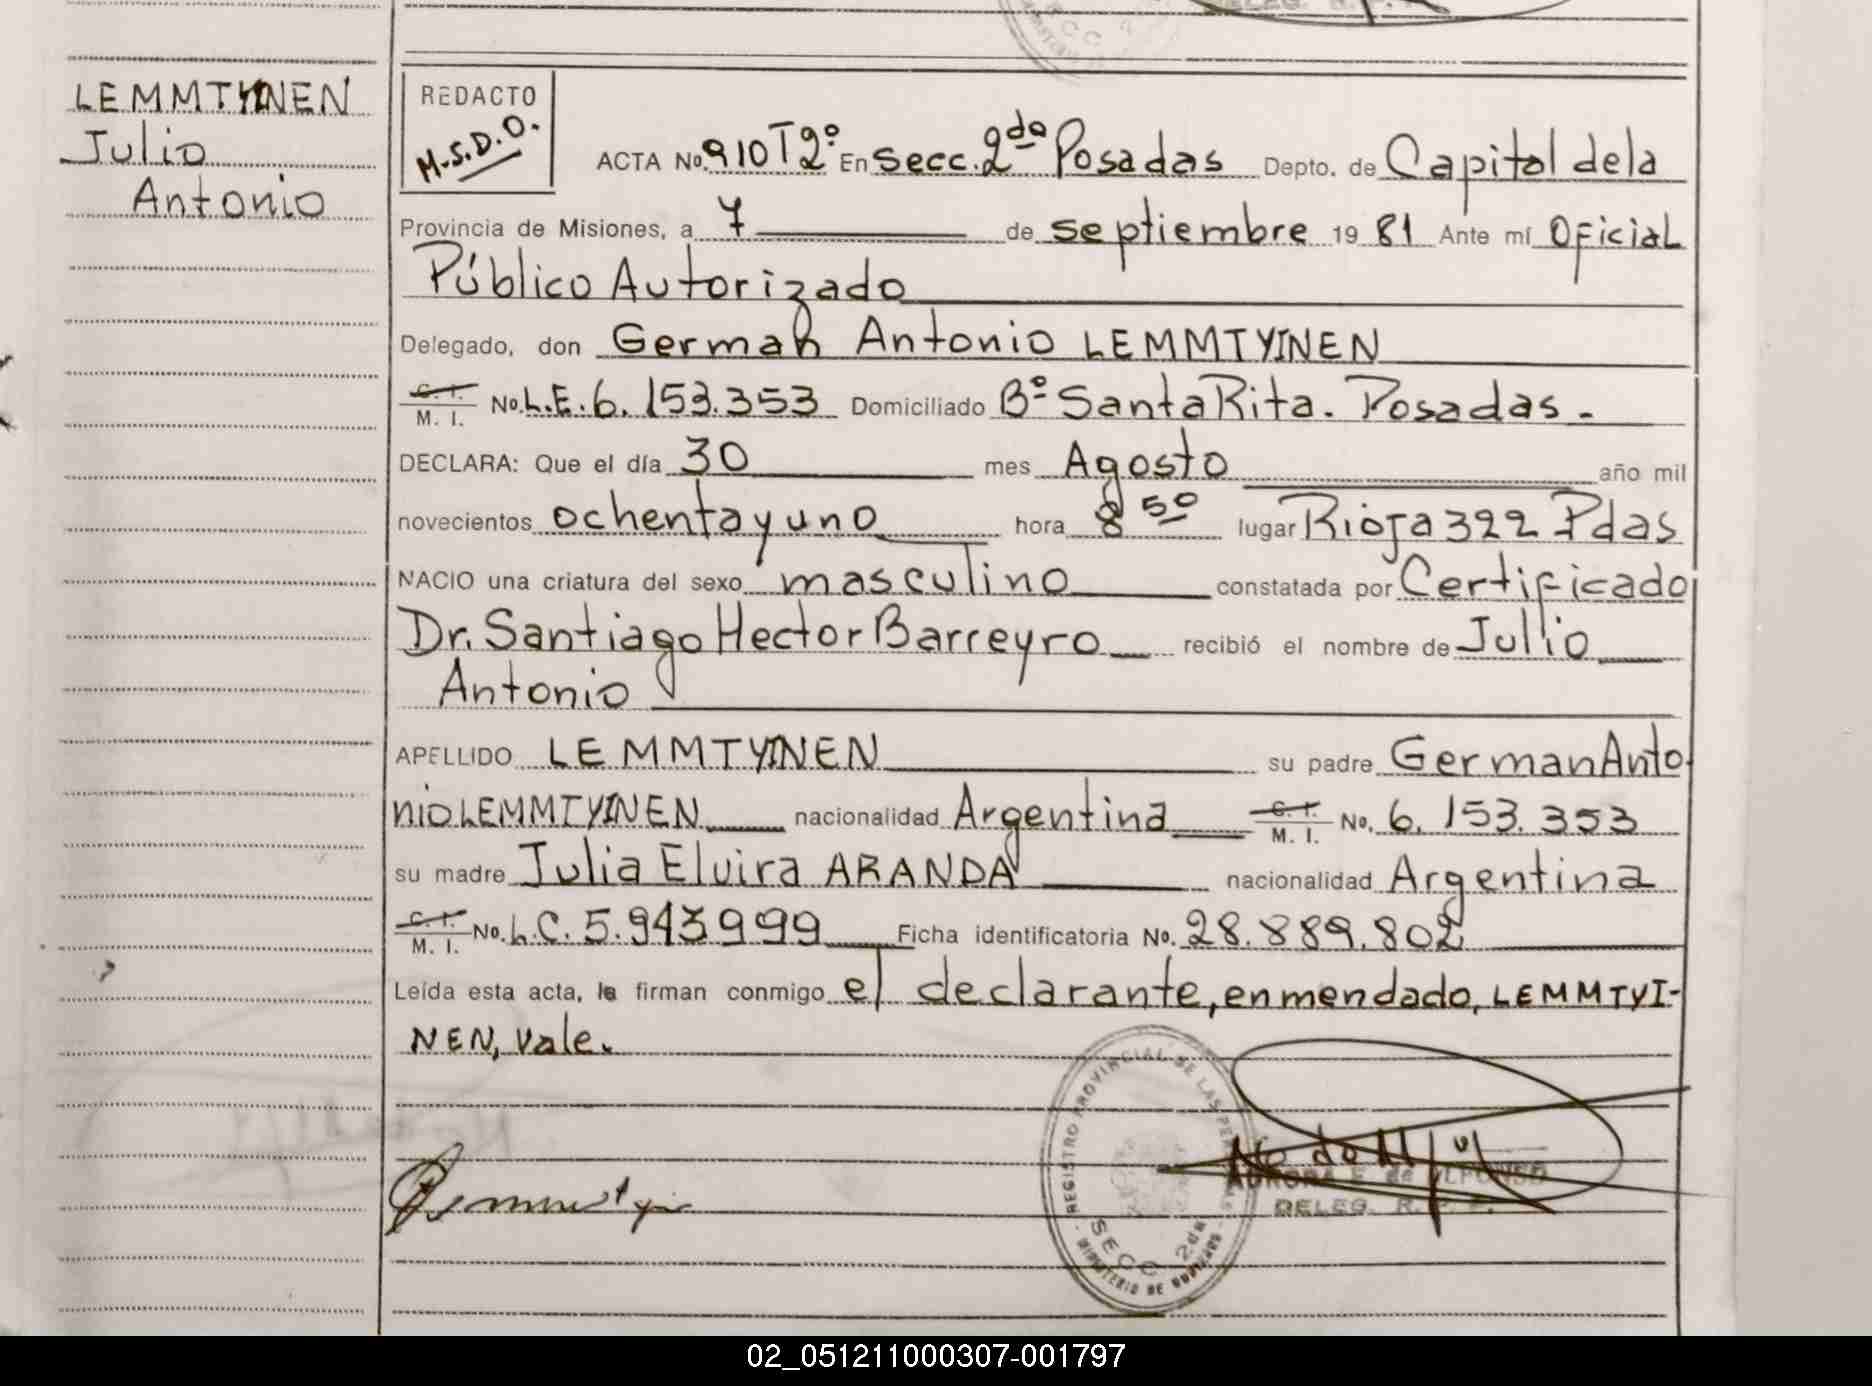 LEMMTYINEN
Julio
Antonio
REDACTO
M.S.D.O.
ACTA No. 910 T2º En secc. 2da Posadas Depto. de Capital de la
Provincia de Misiones, a 7 de septiembre 19 81 Ante mí Oficial
Público Autorizado
Delegado, don German Antonio LEMMTYINEN
C. I. M. I. No. L.E. 6.153.353 Domiciliado Bº Santa Rita. Posadas.
DECLARA: Que el día 30 mes Agosto año mil
novecientos ochenta y uno hora 8 50 lugar Rioja 322 Pdas
NACIO una criatura del sexo masculino constatada por Certificado
Dr. Santiago Hector Barreyro recibió el nombre de Julio
Antonio
APELLIDO LEMMTYINEN su padre German Anto
nio LEMMTYINEN nacionalidad Argentina C. I. M. I. No. 6.153.353
su madre Julia Elvira ARANDA nacionalidad Argentina
C. I. M. I. No. L.C. 5.943999 Ficha identificatoria No. 28.889.802
Leída esta acta, la firman conmigo el declarante, enmendado, LEMMTYI-
NEN, vale.
REGISTRO PROVINCIAL DE LAS PERSONAS
SECC 2da
MINISTERIO DE GOBIERNO
AURORA E. de ALFONSO
DELEG. R. P. P.
02_051211000307-001797